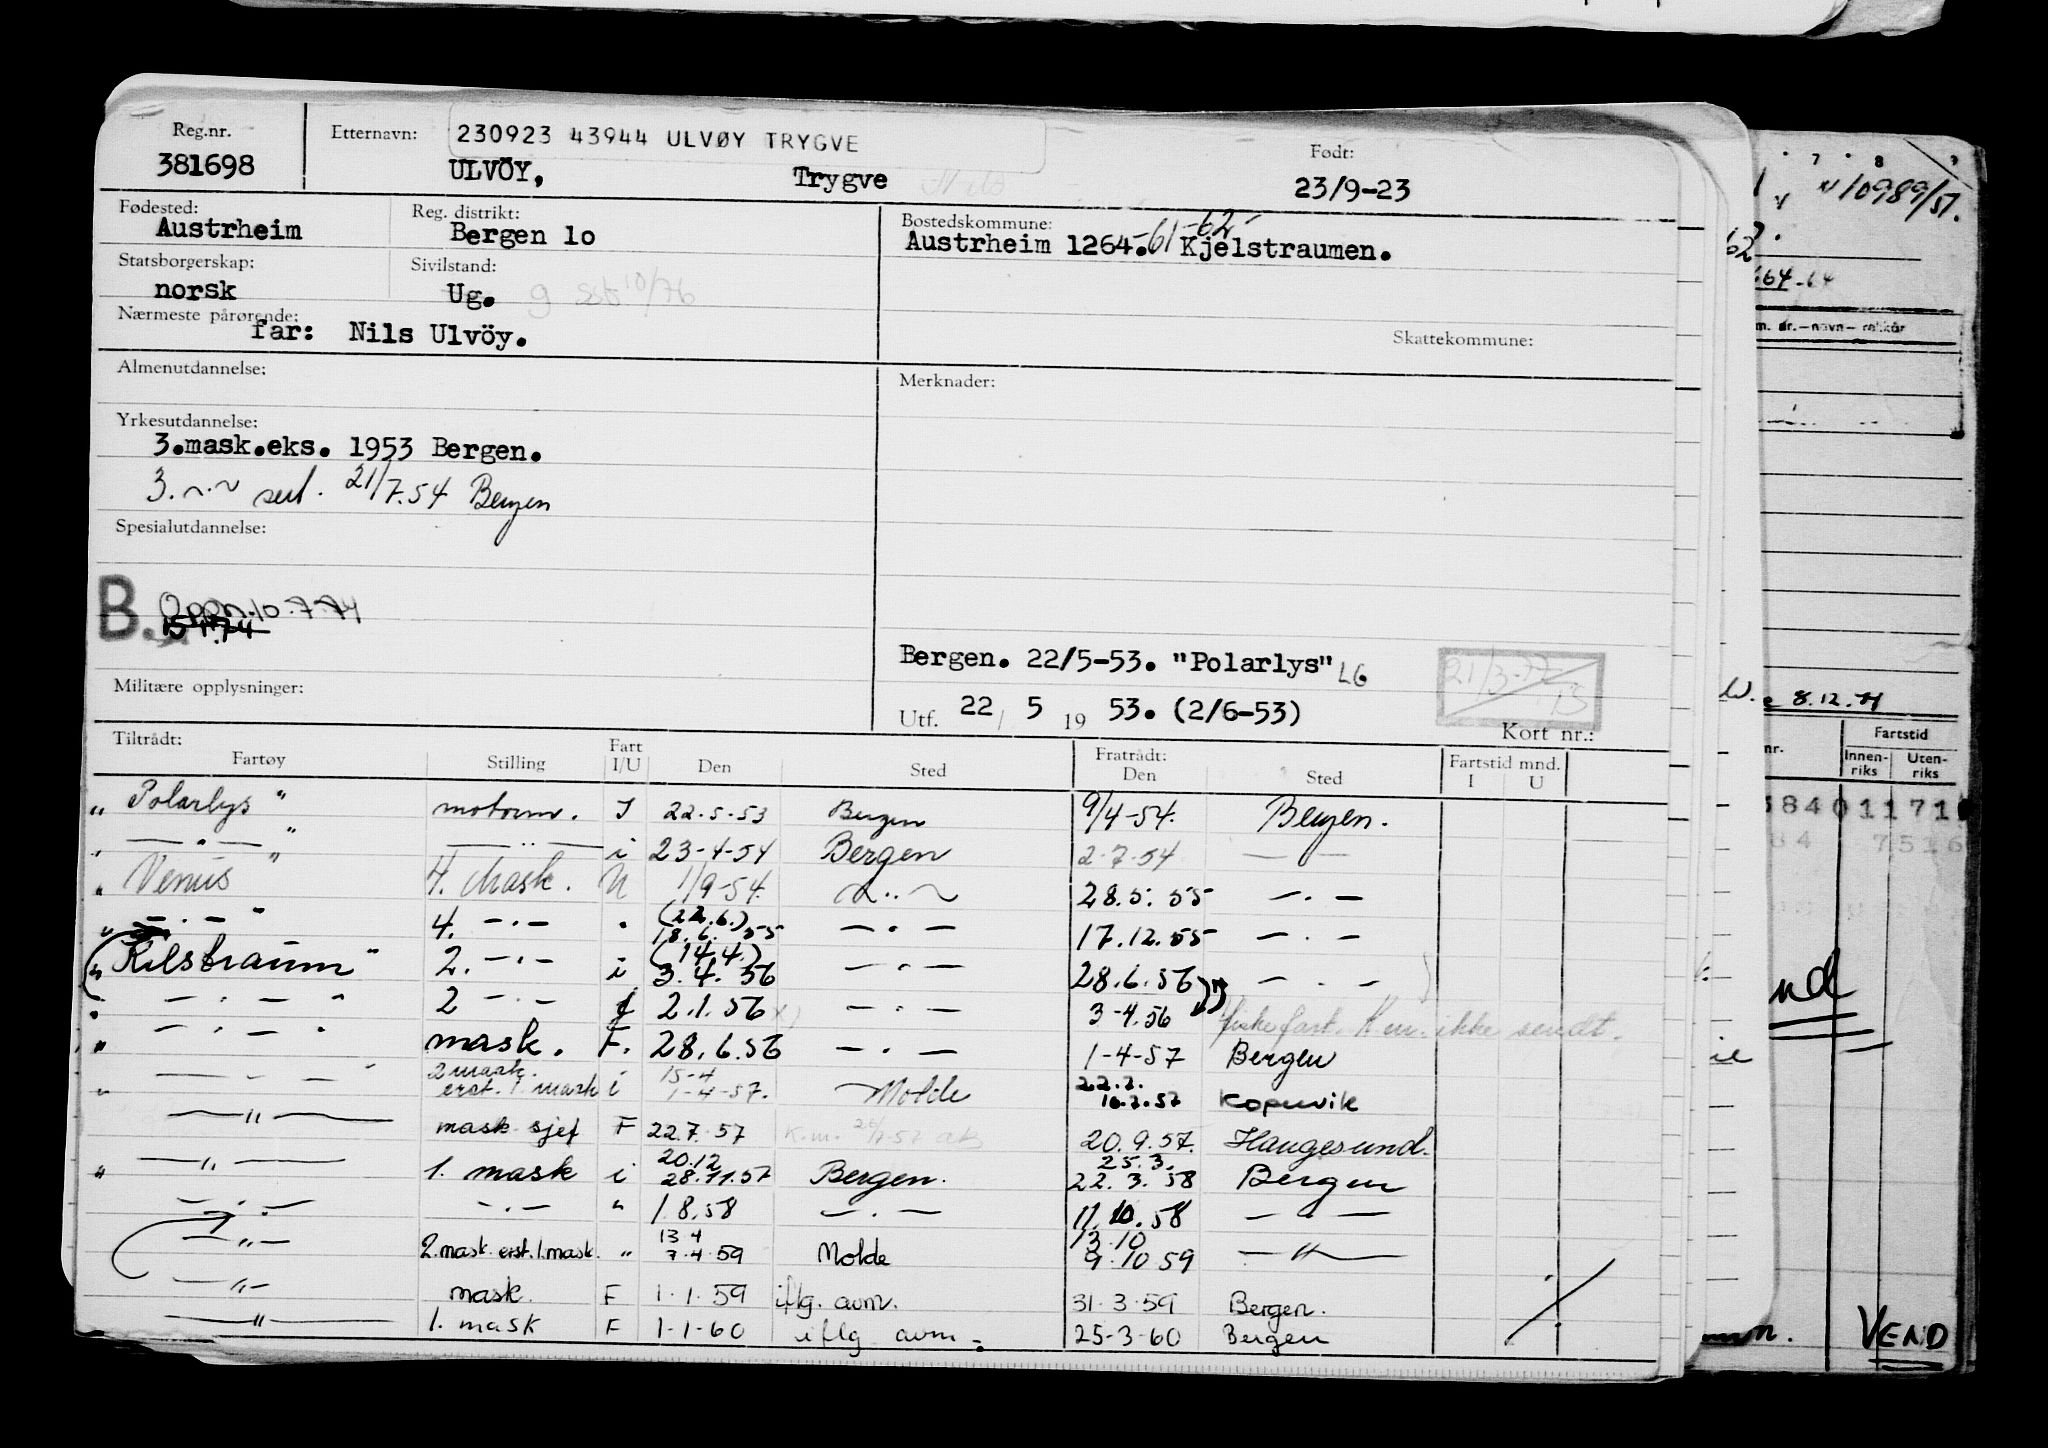 Reg.nr. Etternavn: 230923 43944 ULVØY TRYGVE Født:
381698 ULVÖY, Trygve Nils 23/9-23
Fødested: Reg. distrikt: Bostedskommune:
Austrheim Bergen 10 Austrheim 1264.61-62 Kjelstraumen.
Statsborgerskap: Sivilstand:
norsk Ug. g 10/76
Nærmeste pårørende:
far: Nils Ulvöy. Skattekommune:
Almenutdannelse: Merknader:
Yrkesutdannelse:
3.mask.eks. 1953 Bergen.
3. sert. 21/7.54 Bergen
Spesialutdannelse:
B. Oppn. 10.7.74
15 1 74
Bergen. 22/5-53. "Polarlys" LG 21/3-77 13
Militære opplysninger: Utf. 22 / 5 19 53. (2/6-53)
Kort nr.:
Tiltrådt: Fart Fratrådt: Fartstid mnd.
Fartøy Stilling I/U Den Sted Den Sted I U
" Polarlys " motorm. I 22.5.53 Bergen 9/4-54. Bergen.
" — . — " — .. — i 23-4-54 Bergen 2-7-54 — —
" Venus " 4. Mask. U 1/9-54. ~..~ 28.5.55 — . —
" — . — " 4. — . — " (22.6.) 18.6.55 — . — 17.12.55 — . —
" Kilstraum " 2. — . — i (14.4.) 3.4.56 — . — 28.6.56 — . —
" — . — " 2 — . — f 2.1.56 x) — . — 3-4.56 fiskefart. K.m. ikke sendt.
" — . — " mask. F. 28.6.56 — . — 1-4-57 Bergen
" — . — 2 mask. erst. 1. mask i 15-4 1-4-57. Molde 22.7. 16.7.57 Kopervik
— " — mask sjef F 22.7.57 K.m. 26/7-57 20.9.57. Haugesund.
" — " — 1. mask i 20.12 28.11.57 Bergen. 25.3. 22.3.58 Bergen
— . — — . — " 1.8.58 — . — 11.10.58 — . —
— " — 2.mask. erst. 1.mask. " 13 4 7.4.59 Molde 13.10 9.10 59 — " —
— " — mask. F 1.1.59 iflg. avm. 31.3.59 Bergen.
— " — 1. mask F 1-1-60 iflg avm. 25-3-60 Bergen
7 8 9
10989/51.
62
664-64
8.12.71
nr. Fartstid
Innen-riks Uten-riks
84011710
84 7516
VEND